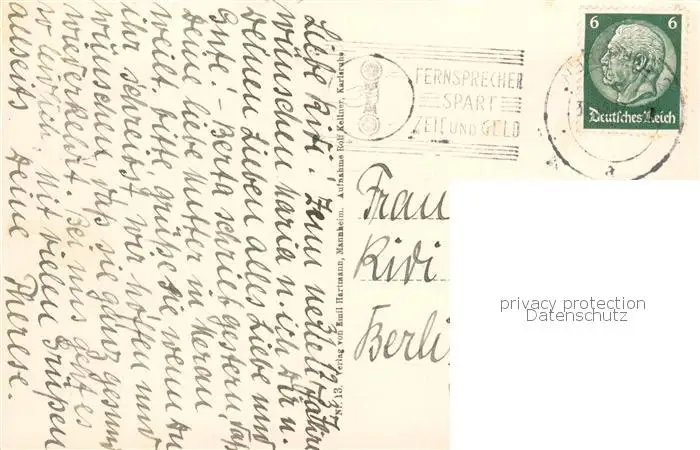 Liebe Kiti! Zum neuen Jahre
wünschen Maria u. ich Dir u.
Deinen Lieben alles Liebe und
Gute! - Berta schrieb gestern, daß
Deine liebe Mutter in Meran
weilt, bitte, grüße sie wenn Du
ihr schreibst, wir hoffen und
wünschen, daß sie ganz gesund
wiederkehrt. Bei uns geht es
so leidlich. Mit vielen Grüßen
allseits Deine Therese.
Nr. 13. Verlag von Emil Hartmann, Mannheim. Aufnahme Rolf Kellner, Karlsruhe
FERNSPRECHER
SPART
ZEIT UND GELD
6 6
Deutsches Reich
a
Frau
Kivi
Berli
privacy protection
Datenschutz